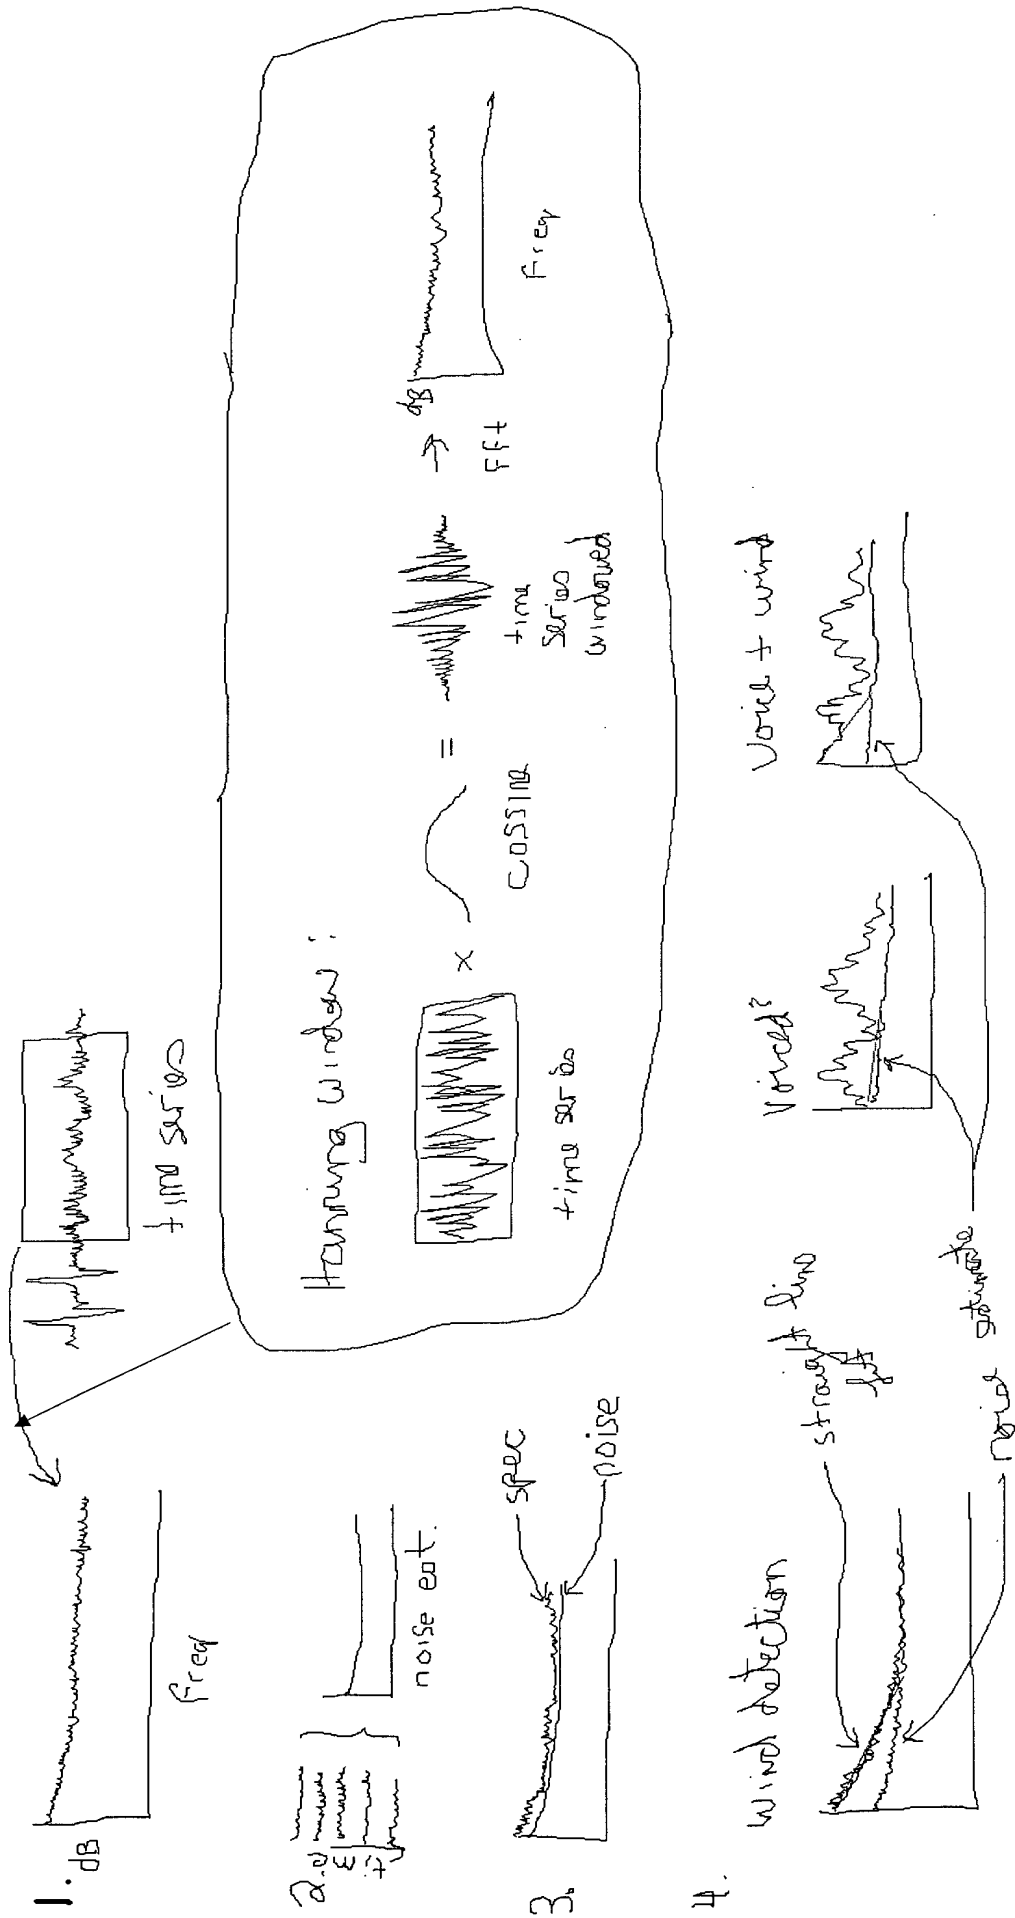 1.
dB
Freq
time series
Hanning window:
time series
x
cossine
=
time
series
windowed
→
fft
dB
Freq
2.
time
noise est.
3.
spec
noise
4.
wind detection
straight line
fit
noise estimate
Voiced?
Voice + wind